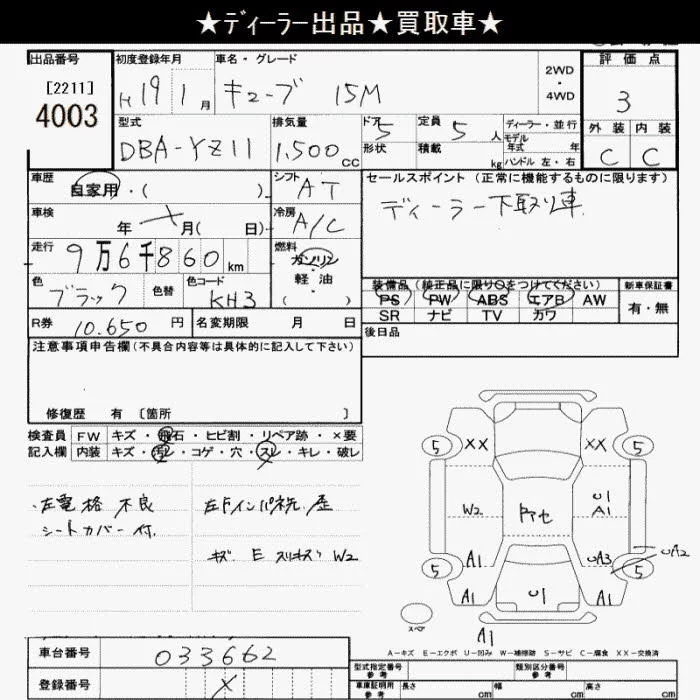 ★ディーラー出品★買取車★
出品番号 初度登録年月 車名・グレード 2WD・4WD 評価点
[2211]
4003
H19 1月 キューブ 15M 3
型式 排気量 ドア 定員 ディーラー・並行 外装 内装
DBA-YZ11 1,500cc 5 5人 モデル年式 年 C C
形状 積載 kg ハンドル 左・右
車歴 シフト セールスポイント(正常に機能するものに限ります)
自家用・( ) AT ディーラー下取り車
車検 冷房
年 月( 日) A/C
走行 燃料
9万6千860km ガソリン
軽油
( )
色 色替 色コード 装備品(純正品に限り○をつけてください) 新車保証書
ブラック KH3 PS PW ABS エアB AW 有・無
SR ナビ TV カワ
R券 10.650円 名変期限 月 日 後日品
注意事項申告欄(不具合内容等は具体的に記入して下さい)
修復歴 有 〔箇所 〕
検査員 FW キズ・飛石・ヒビ割・リペア跡・×要
記入欄 内装 キズ・汚レ・コゲ・穴・スレ・キレ・破レ
・左電格 不良
シートカバー付.
XX XX
5 5
W2 U1
A1
A1 UA3 UA2
5 5
A1 U1 A1
スペア
A1
A-キズ E-エクボ U-凹み W-補修跡 S-サビ C-腐食 XX-交換済
車台番号 033662
登録番号 X
型式指定番号 参考 類別区分番号 参考
車庫証明用 参考 長さ cm 幅 cm 高さ cm